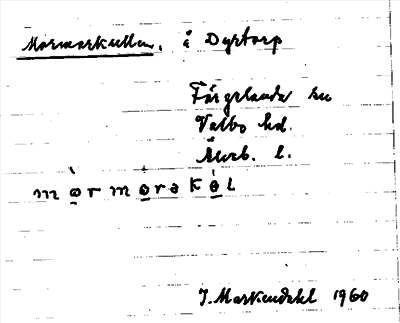 Mormorkullen. i Dyrtorp
Färgelanda sn
Valbo hd.
Älvsb. l.
mo̱rmo̱rəko̱l
J. Markendahl 1960